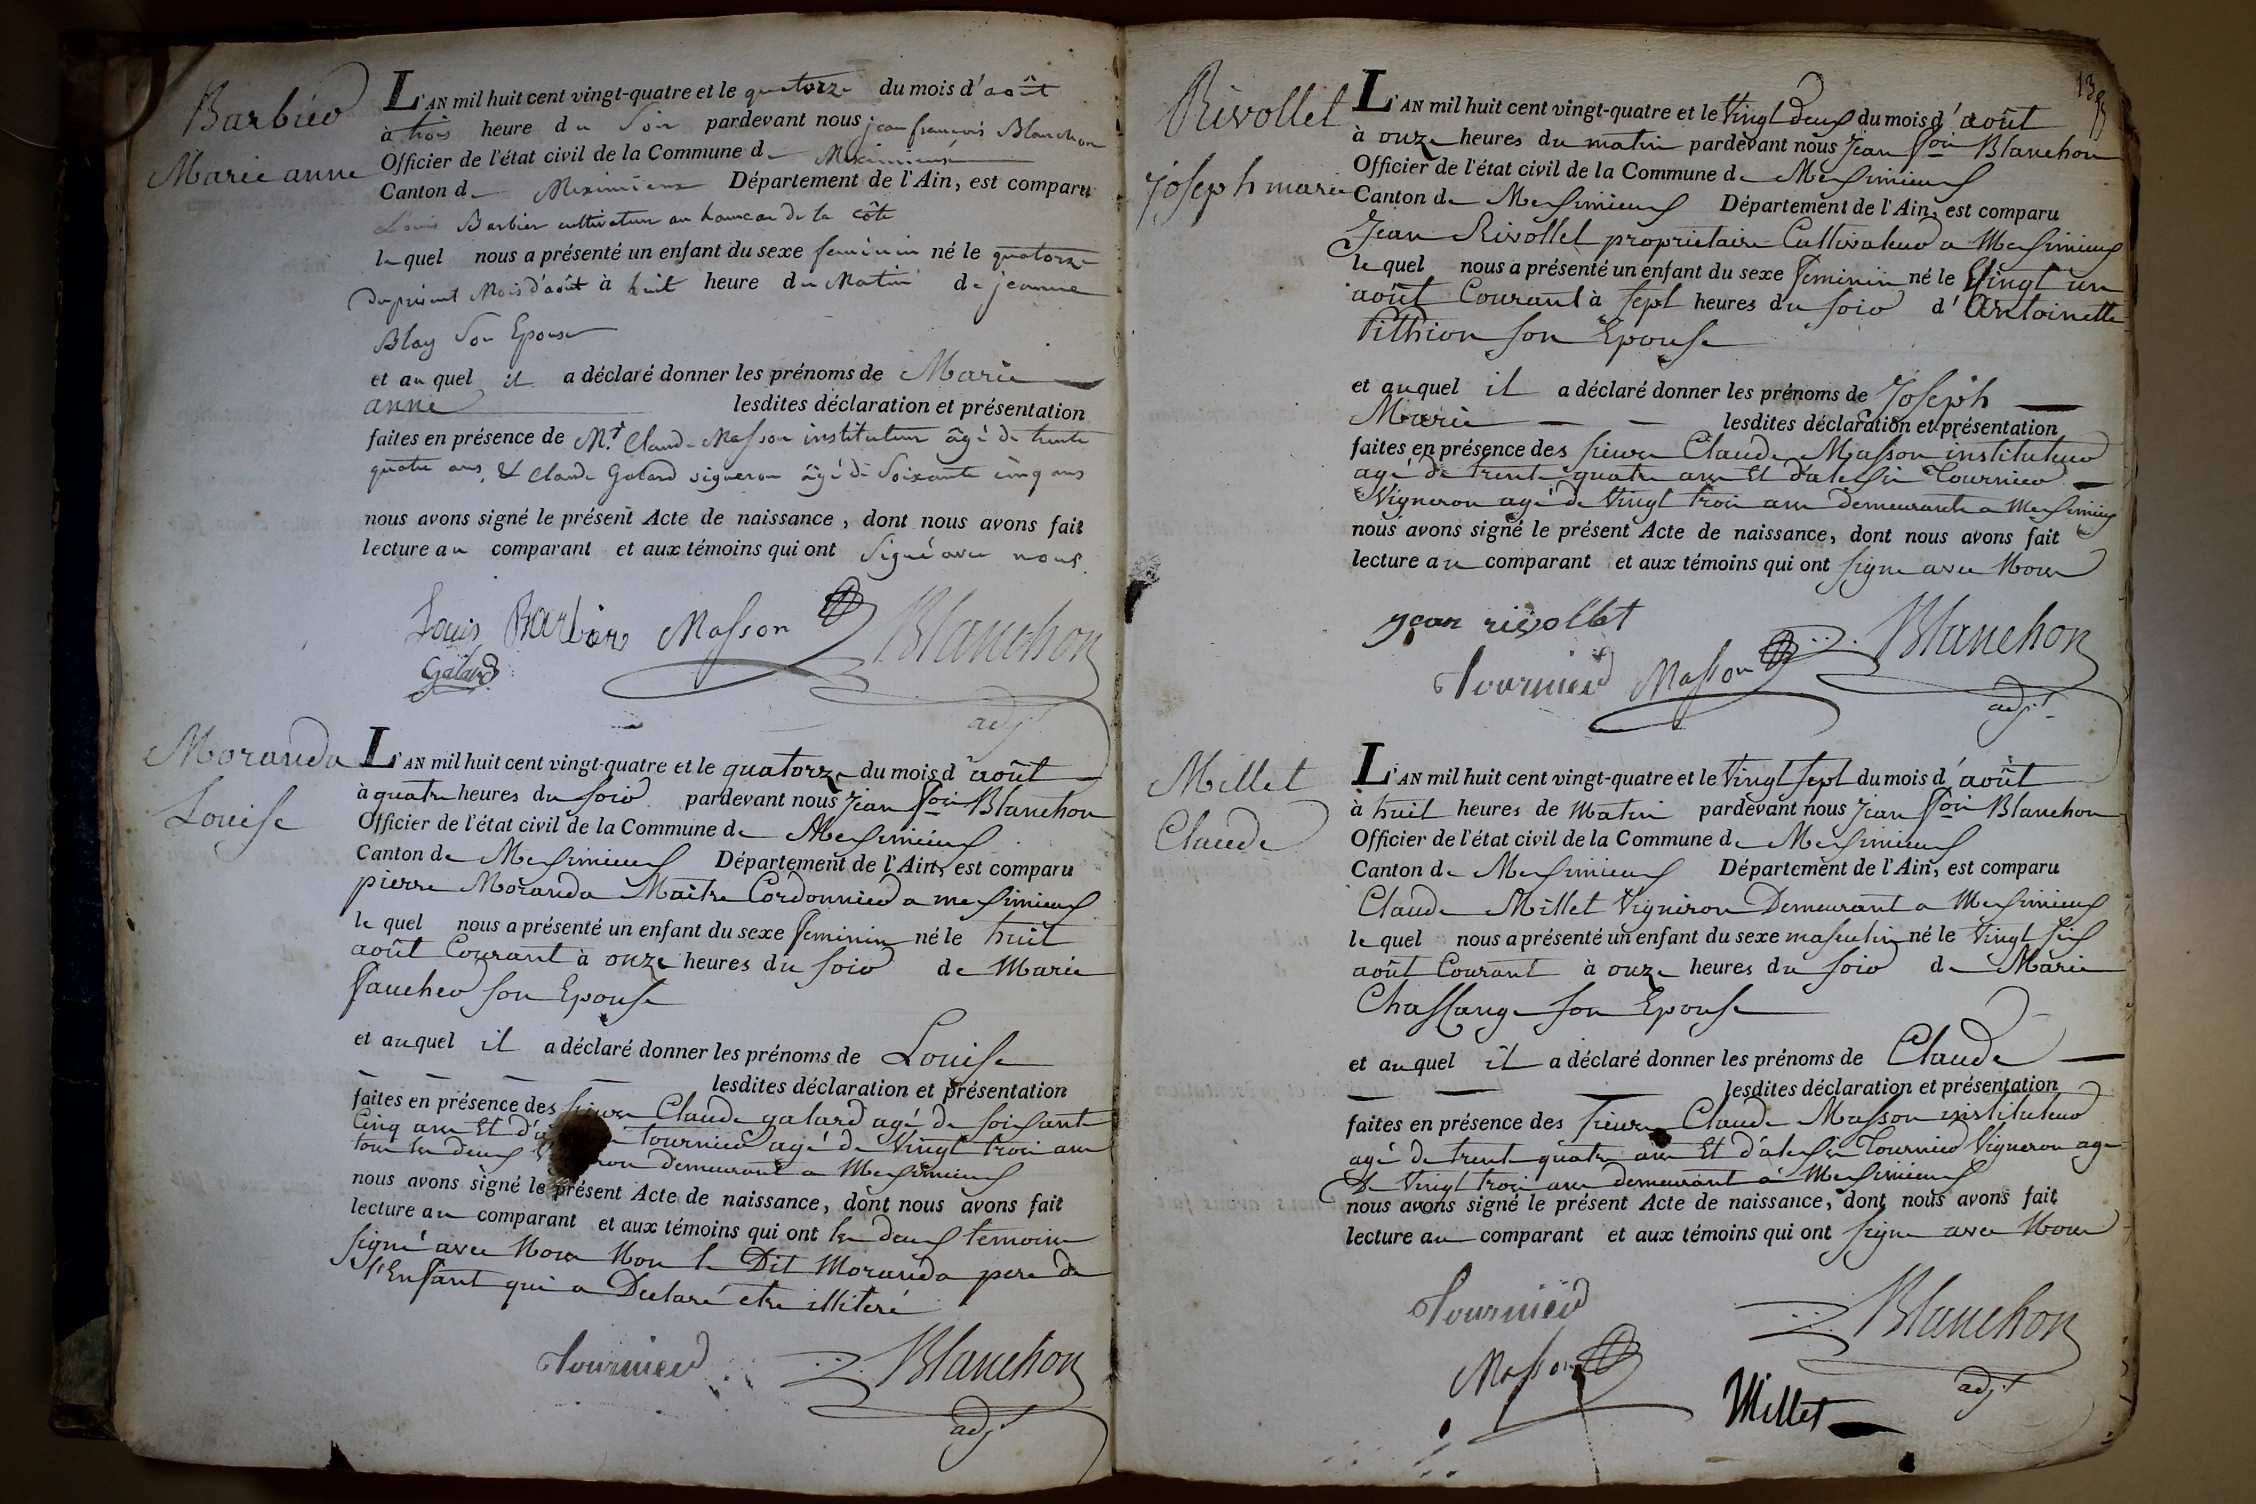 Barbier
Marie anne
L'AN mil huit cent vingt-quatre et le quatorze du mois d'août
à trois heure du Soir pardevant nous jean françois Blanchon
Officier de l'état civil de la Commune de Meximieux
Canton de Meximieux Département de l'Ain, est comparu
Louis Barbier cultivateur au hameau De la côte
le quel nous a présenté un enfant du sexe feminin né le quatorze
du présent Mois d'août à huit heure du Matin de jeanne
Blay Son Epouse
et au quel il a déclaré donner les prénoms de Marie
anne lesdites déclaration et présentation
faites en présence de Mr. Claude Masson instituteur âgé de trente
quatre ans, & Claude Galard vigneron âgé de Soixante cinq ans
nous avons signé le présent Acte de naissance, dont nous avons fait
lecture au comparant et aux témoins qui ont Signé avec nous.
Louis Barbier Masson Blanchon
Galard
adjt
Moranda
Louise
L'AN mil huit cent vingt-quatre et le quatorze du mois d'août
à quatre heures du soir pardevant nous Jean fois Blanchon
Officier de l'état civil de la Commune de Meximieux
Canton de Meximieux Département de l'Ain, est comparu
pierre Moranda Maitre Cordonnier a meximieux
le quel nous a présenté un enfant du sexe feminin né le huit
août Courant à onze heures du soir de Marie
faucher son Epouse
et au quel il a déclaré donner les prénoms de Louise
lesdites déclaration et présentation
faites en présence des sieurs Claude galard agé de soisant
Cinq ans Et tournier agé de Vingt trois ans
tous les deux demeurant a Meximieux
nous avons signé le présent Acte de naissance, dont nous avons fait
lecture au comparant et aux témoins qui ont les deux temoins
signé avec Nous Non le Dit Moranda pere de
l'Enfant qui a Declaré etre illiteré
Tournier Blanchon
adjt
13
Rivollet
Joseph marie
L'AN mil huit cent vingt-quatre et le Vingt deux du mois d'août
à onze heures du matin pardevant nous Jean fois Blanchon
Officier de l'état civil de la Commune de Meximieux
Canton de Meximieux Département de l'Ain, est comparu
Jean Rivollet proprietaire Cultivateur a Meximieux
le quel nous a présenté un enfant du sexe feminin né le Vingt un
août Courant à sept heures du soir d'Antoinette
Pithion son Epouse
et au quel il a déclaré donner les prénoms de Joseph
Marie lesdites déclaration et présentation
faites en présence des sieurs Claude Masson instituteur
agé de trente quatre ans Et d'alexis Tournier
Vigneron agé de Vingt trois ans demeurants a Meximieux
nous avons signé le présent Acte de naissance, dont nous avons fait
lecture au comparant et aux témoins qui ont signe avec Nous
jean rivollet
Tournier Masson Blanchon
adjt
Millet
Claude
L'AN mil huit cent vingt-quatre et le Vingt sept du mois d'août
à huit heures de Matin pardevant nous Jean fois Blanchon
Officier de l'état civil de la Commune de Meximieux
Canton de Meximieux Département de l'Ain, est comparu
Claude Millet Vigniron Demeurant a Meximieux
le quel nous a présenté un enfant du sexe masculin né le Vingt six
août Courant à onze heures du soir de Marie
Chassange son Epouse
et au quel il a déclaré donner les prénoms de Claude
lesdites déclaration et présentation
faites en présence des sieurs Claude Masson instituteur
agé de trente quatre ans Et d'alexis Tournier Vigneron age
de Vingt trois ans demeurant a Meximieux
nous avons signé le présent Acte de naissance, dont nous avons fait
lecture au comparant et aux témoins qui ont signe avec Nous
Tournier Blanchon
Masson adjt
Millet